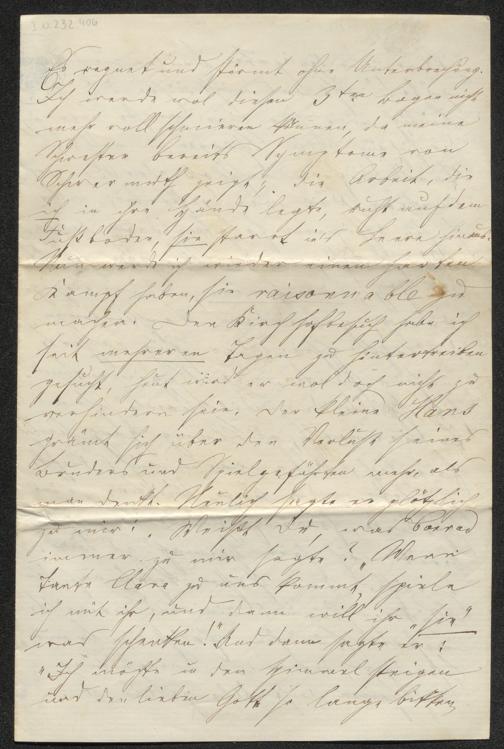 I.N.232.406
Es regnet und stürmt ohne Unterbrechung.
Ich werde wol diesen 3ten Bogen nicht
mehr voll schmieren können, da meine
Schwester bereits Symptome von
Schwermuth zeigt, die Arbeit, die
ich in ihre Hände legte, ruht auf dem
Fußboden, sie starrt ins Leere hinaus.
Nun werde ich wieder einen harten
Kampf haben, sie raisonnable zu
machen. Den Kirchhofbesuch habe ich
seit mehreren Tagen zu hintertreiben
gesucht, heut wird er wol doch nicht zu
verhindern sein. Der kleine Hans
grämt sich über den Verlust seines
Bruders und Spielgefährten mehr, als
man denkt. Neulich sagte er plötzlich
zu mir: Weißt Du, was Conrad
immer zu mir sagte? "Wenn
Tante Clara zu uns kommt, spiele
ich mit ihr, und dann will ihr "sie"
was schenken!" Und dann sagte er:
"Ich möchte in den Himmel steigen
und den lieben Gott so lange bitten,